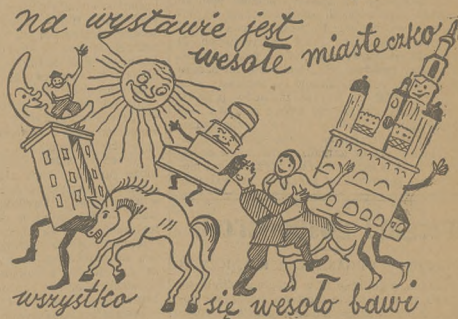 na wystawie jest
wesołe miasteczko
wszystko się wesoło bawi